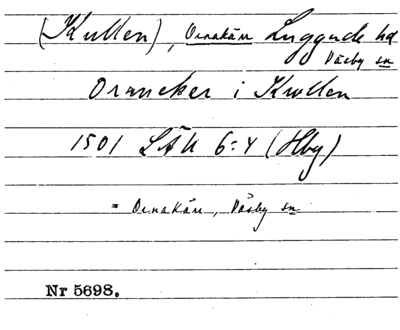 (Kullen), Ornakärr Luggude hd
Väsby sn
Ornneker i Kwllen
1501 LÄU 6:4 (Hby)
= Ornakärr, Väsby sn
Nr 5698.